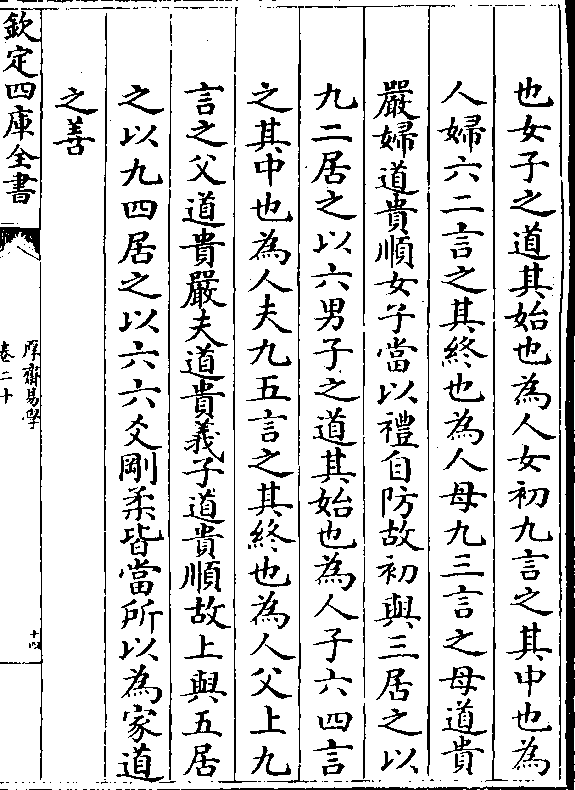 也女子之道其始也為人女初九言之其中也為
人婦六二言之其終也為人母九三言之母道貴
嚴婦道貴順女子當以禮自防故初與三居之以
九二居之以六男子之道其始也為人子六四言
之其中也為人夫九五言之其終也為人父上九
言之父道貴嚴夫道貴義子道貴順故上與五居
之以九四居之以六六爻剛柔皆當所以為家道
之善
欽定四庫全書
厚齋易學
卷二十
十四